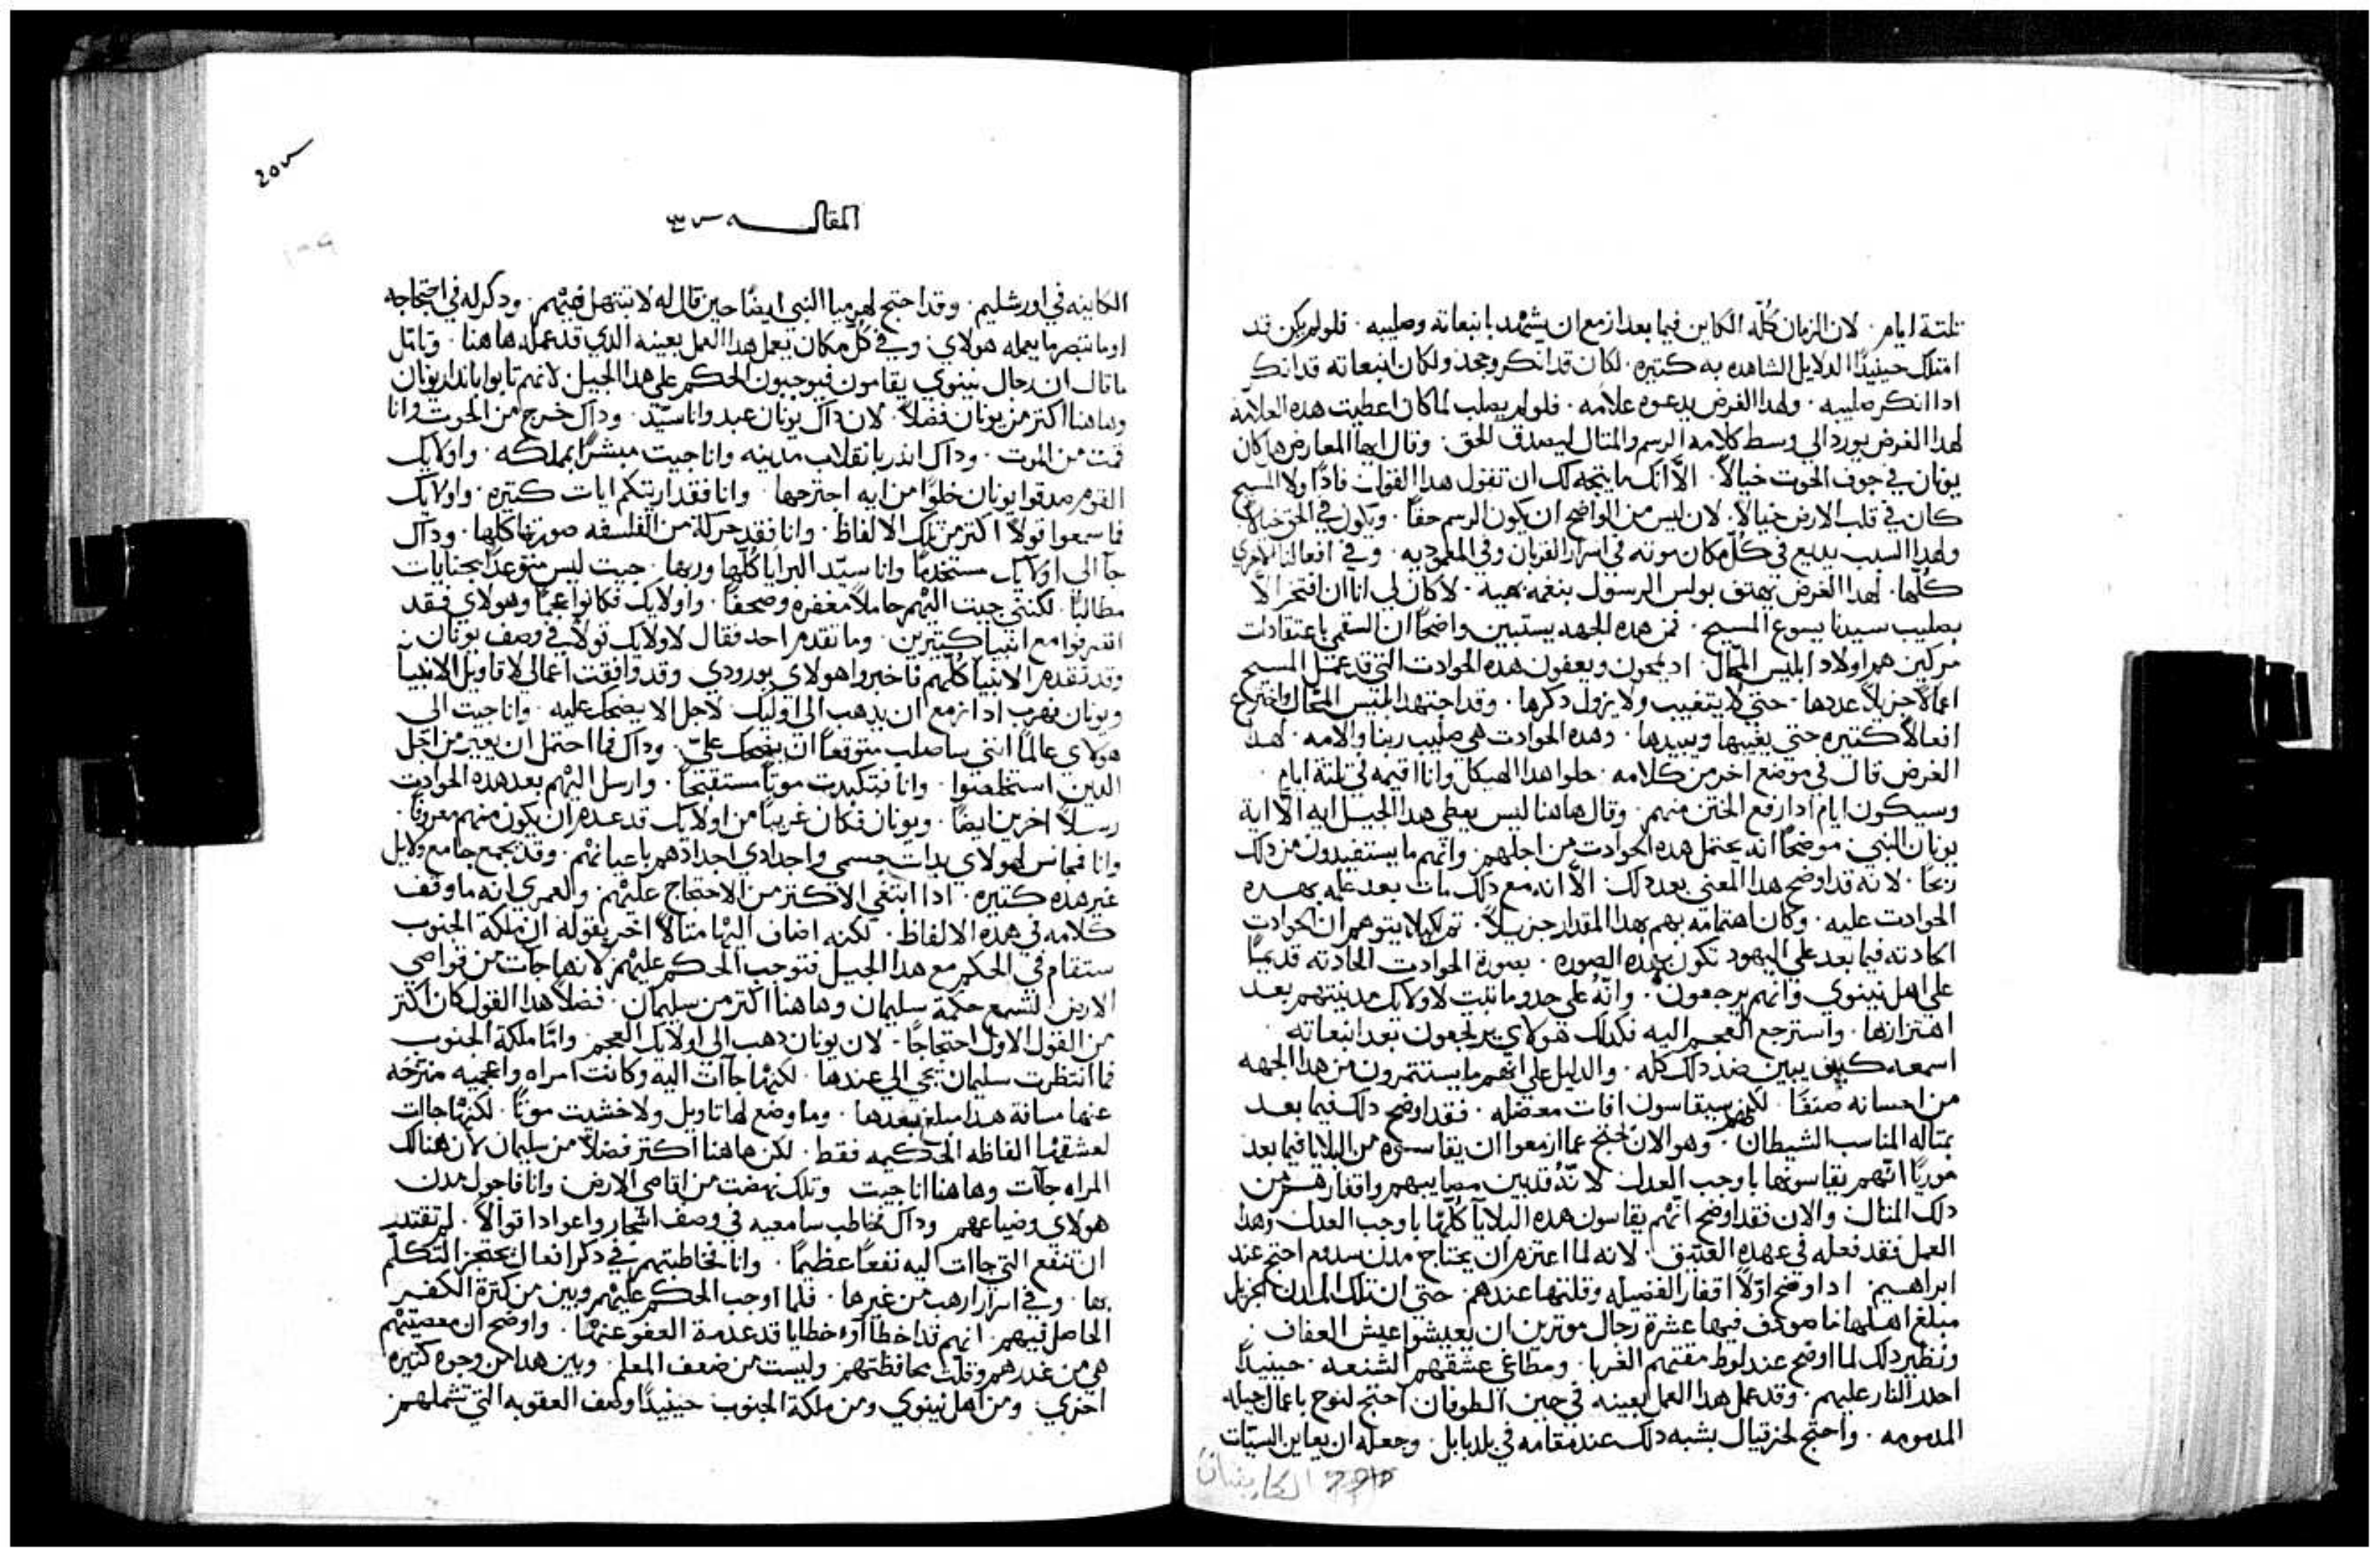 تلتة ايام . لان الزمان كله الكاين فيما بعد ازمع ان يشهد بانبعاته وصليبه . فلو لم يكن قد
امتلك حينيدا الدلايل الشاهده به كتيره . لكان قد انكر وجحد ولكان انبعاته قد انكر
ادا انكر صليبه . ولهدا الغرض يدعوه علامه . فلو لم يصلب لما كان اعطيت هده العلامه
لهدا الغرض يورد الي وسط كلامه الرسم والمتال ليصدق الحق . وقال ايها المعارض هل كان
يونان في جوف الحوت خيالاً . الا انك ما يتجه لك ان تقول هدا القول فادًا ولا المسيح
كان في قلب الارض خيالاً . لان ليس من الواضح ان يكون الرسم حقًا . ويكون في الحق خيالا
ولهدا السبب يديع في كل مكان موته في اسرار القربان وفي المعموديه . وفي افعالنا الاخري
كلها . لهدا الغرض يهتف بولس الرسول بنغمه بهيه . لا كان لي انا ان افتخر الا
بصليب سيدنا يسوع المسيح . فمن هده الجهه يستبين واضحًا ان السقمي باعتقادات
مركين هم اولاد ابليس المحال . اد يمحون ويعفون هده الحوادت التي قد عمل المسيح
اعمالا جزيلا عددها . حتي لا يتغيب ولا يزول دكرها . وقد اجتهد ابليس المحال واخترع
افعالا كتيره حتي يغيبها ويبيدها . وهده الحوادت هي صليب ربنا والامه . لهدا
الغرض قال في موضع اخر من كلامه . حلوا هدا الهيكل وانا اقيمه في تلتة ايام .
وسيكون ايام ادا رفع الختن منهم . وقال هاهنا ليس يعطي هدا الجيل ايه الا اية
يونان النبي . موضحًا انه يحتمل هده الحوادت من اجلهم . وانهم ما يستفيدون من دلك
ربحًا . لانه قد اوضح هدا المعني بعد دلك . الا انه مع دلك مات بعد علمه بهده
الحوادت عليه . وكان اهتمامه بهم بهدا المقدار جزيلاً . تم لكيلا يتوهم ان الحوادت
الحادته فيما بعد علي اليهود تكون بهده الصوره . بصورة الحوادت الحادته قديمًا
علي اهل نينوي وانهم يرجعون . وانه علي حدو ما تبت لاولايك مدينتهم بعد
اهتزازها . واسترجع العجم اليه فكدلك هولاي يرجعون بعد انبعاته .
اسمعه كيف يبين ضد دلك كله . والدليل علي انهم ما يستتمرون من هدا الجهه
من احسانه صنفًا . لكنهم سيقاسون افات معضله . فقد اوضح دلك فيما بعد
بمتاله المناسب الشيطان . وهو الان احتج عما ازمعوا ان يقاسوه من البلايا فيما بعد
موريًا انهم يقاسونها باوجب العدل . لانه قد بين مصايبهم واقفارهم من
دلك المتال . والان فقد اوضح انهم يقاسون هده البلايا كلها باوجب العدل . وهدا
العمل فقد فعله في عهده العتيق . لانه لما اعتزم ان يجتاح مدن سدوم احتج عند
ابراهيم . اد اوضح اولاً اقفار الفضيله وقلتها عندهم . حتي ان تلك المدن الجزيل
مبلغ اهلها ما صودف فيها عشرة رجال موترين ان يعيشوا عيش العفاف .
ونظير دلك لما اوضح عند لوط مقتهم الغربا . ومطاغي عشقهم الشنعه . حينيدًا
احدر النار عليهم . وقد عمل هدا العمل بعينه في حين الطوفان احتج لنوح باعمال جيله
المدمومه . واحتج لحزقيال بشبه دلك عند مقامه في بلد بابل . وجعله ان يعاين السيات
الكاينات
205
المقاله ٤٣
الكاينه في اورشليم . وقد احتج لهرميا النبي ايضًا حين قال له لا تبتهل فيهم . ودكر له في احتجاجه
اوما تبصر ما يعمله هولاي . وفي كل مكان يعمل هدا العمل بعينه الدي قد عمله هاهنا . وتامل
ما قال ان رجال نينوي يقامون فيوجبون الحكم علي هدا الجيل لانهم تابوا باندار يونان
وهاهنا اكتر من يونان فضلاً . لان داك يونان عبد وانا سيد . وداك خرج من الحوت وانا
قمت من الموت . وداك اندر بانقلاب مدينه وانا جيت مبشرًا بمملكه . واولايك
القوم صدقوا يونان خلوا من ايه اجترحها . وانا فقد اريتكم ايات كتيره . واولايك
فما سمعوا قولاً اكتر من تلك الالفاظ . وانا فقد حركت من الفلسفه صورتها كلها . وداك
جا الي اولايك مستخدمًا وانا سيد البرايا كلها وربها . جيت ليس متوعدًا بجنايات
مطالبًا . لكنني جيت اليهم حاملاً مغفره وصحفًا . واولايك فكانوا عجمًا وهولاي فقد
اقترفوا مع انبيا كتيرين . وما تقدم احد فقال لاولايك قولاً في وصف يونان .
وقد تقدم الانبيا كلهم فاخبروا هولاي بورودي . وقد وافقت اعمالي لاقاويل الانبيا
ويونان فهرب اد ازمع ان يدهب الي اوليك . لاجل الا يضحك عليه . وانا جيت الي
هولاي عالمًا انني ساصلب متوقعًا ان يضحك علي . وداك فما احتمل ان يعير من اجل
الدين استخلصوا . وانا فتكبدت موتًا مستقبحًا . وارسل اليهم بعد هده الحوادت
رسلاً اخرين ايضًا . ويونان فكان غريبًا من اولايك قد عدم ان يكون منهم معروفًا .
وانا فمجانس لهولاي بدات جسمي واجدادي اجدادهم باعيانهم . وقد يجمع جامع دلايل
غير هده كتيره . ادا ابتغي الاكتر من الاحتجاج عليهم . ولعمري انه ما وقف
كلامه في هده الالفاظ . لكنه اضاف اليها متالاً اخر بقوله ان ملكة الجنوب
ستقام في الحكم مع هدا الجيل فتوجب الحكم عليهم لانها جات من قواصي
الارض لتسمع حكمة سليمان وهاهنا اكتر من سليمان . فضلاً هدا القول كان اكتر
من القول الاول احتجاجًا . لان يونان دهب الي اولايك العجم . واما ملكة الجنوب
فما انتظرت سليمان يجي الي عندها . لكنها جات اليه وكانت امراه واعجميه منتزحه
عنها مسافة هدا مبلغ بعدها . وما وضع لها تاويل ولا خشيت موتًا . لكنها جات
لعشقها الفاظه الحكيمه فقط . لكن هاهنا اكتر فضلاً من سليمان لان هنالك
المراه جات وهاهنا انا جيت وتلك نهضت من اقاصي الارض . وانا فاجول مدن
هولاي وضياعهم وداك خاطب سامعيه في وصف اشجار واعواد اقوالاً . لم تقتدر
ان تنفع التي جات اليه نفعًا عظيمًا . وانا فخاطبتهم في دكر افعال يحتجز التكلم
بها . وفي اسرار ارهب من غيرها . فلما اوجب الحكم عليهم وبين من كترة الكفر
الحاصل فيهم . انهم قد اخطااوا خطايا قد عدمة العفو عنها . واوضح ان معصيتهم
هي من غدرهم وقلت محافظتهم وليست من ضعف المعلم . وبين هدا من وجوه كتيره
اخري . ومن اهل نينوي ومن ملكة الجنوب حينيدًا وصف العقوبه التي تشملهم